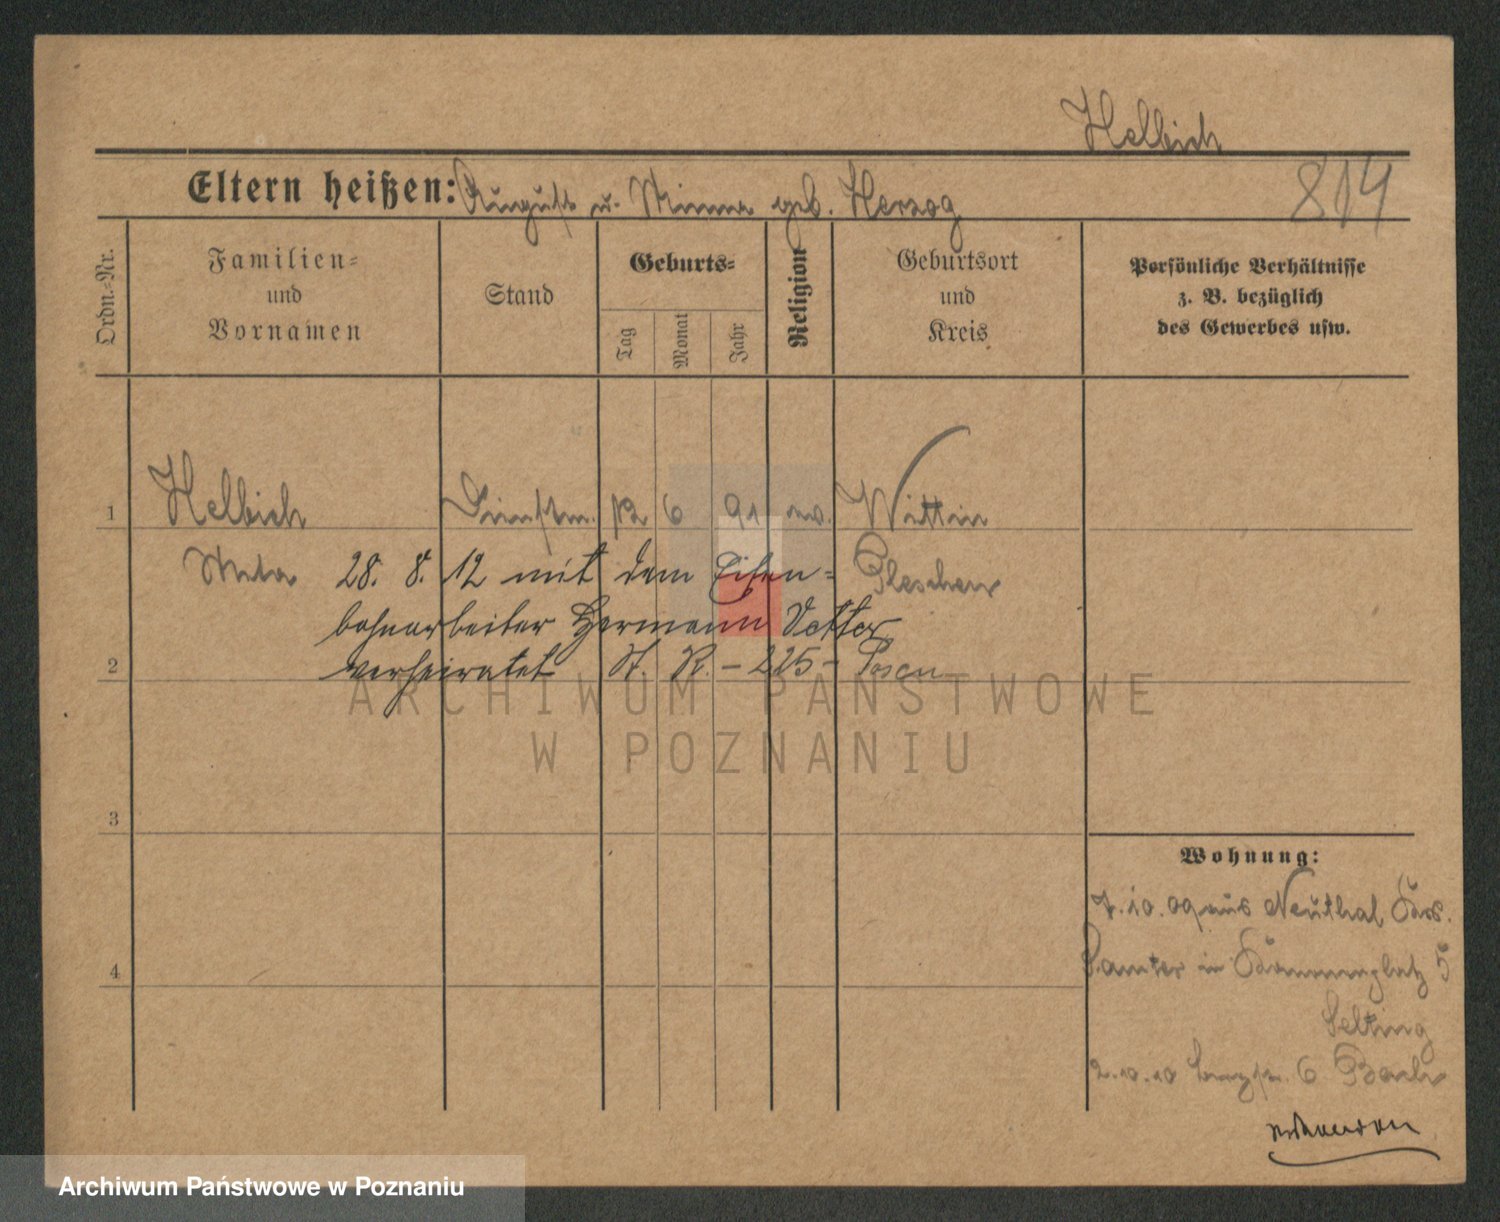 Helbich
Eltern heißen: August u. Minna geb. Herzog 814
Ordn.-Nr.
Familien-
und
Vornamen
Stand
Geburts-
Tag
Monat
Jahr
Religion
Geburtsort
und
Kreis
Persönliche Verhältnisse
z. B. bezüglich
des Gewerbes usw.
1 Helbich Dienstm. 12 6 91 ev. Wittin
Meta Pleschen
28. 8. 12 mit dem Eisen-
bahnarbeiter Hermann Vetter
2 verheiratet St. R. - 225 - Posen
3
4
Wohnung:
7.10.09 aus Neuthal Krs.
Samter in 5
2.10.10 6
ARCHIWUM PAŃSTWOWE
W POZNANIU
Archiwum Państwowe w Poznaniu